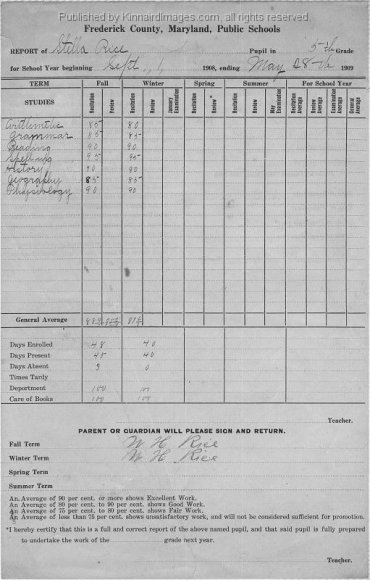 Published by KinnairdImages.com, all rights reserved.
Frederick County, Maryland, Public Schools
REPORT of Stella Rice Pupil in 5th Grade
for School Year beginning Sept. 1 1908, ending May 28th 1909
TERM Fall Winter Spring Summer For School Year
STUDIES Recitation Review Recitation Review January Examination Recitation Review Recitation Review May Examination Recitation Average Review Average Examination Average General Average
Arithmetic 85 80
Grammar 85 85
Reading 90 90
Spelling 95 95
History 90 90
Geography 85 85
Physiology 90 90
General Average
Days Enrolled 48 40
Days Present 45 40
Days Absent 3 0
Times Tardy
Deportment 100 100
Care of Books 100 100
Teacher.
PARENT OR GUARDIAN WILL PLEASE SIGN AND RETURN.
Fall Term W. H. Rice
Winter Term W. H. Rice
Spring Term
Summer Term
An Average of 90 per cent. or more shows Excellent Work.
An Average of 80 per cent. to 90 per cent. shows Good Work.
An Average of 75 per cent. to 80 per cent. shows Fair Work.
An Average of less than 75 per cent. shows unsatisfactory work, and will not be considered sufficient for promotion.
*I hereby certify that this is a full and correct report of the above named pupil, and that said pupil is fully prepared
to undertake the work of the grade next year.
Teacher.